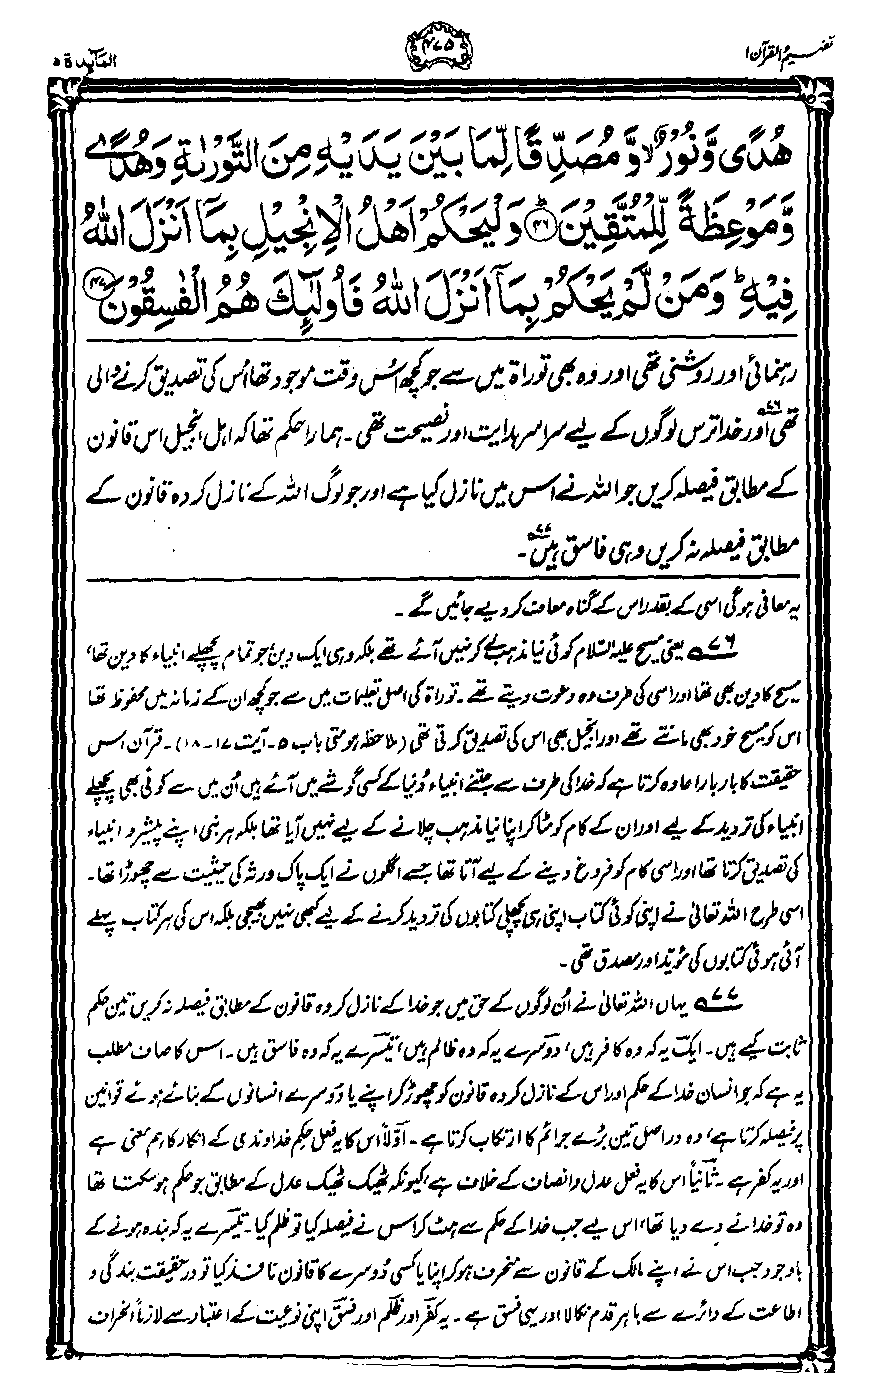 تفہیم القرآن ۱
۴۷۵
المآئدۃ ۵
هُدًى وَّنُوْرٌ ۙ وَّمُصَدِّقًا لِّمَا بَيْنَ يَدَيْهِ مِنَ التَّوْرٰىةِ وَهُدًى
وَّمَوْعِظَةً لِّلْمُتَّقِيْنَ ؕ ۴۶ وَلْيَحْكُمْ اَهْلُ الْاِنْجِيْلِ بِمَاۤ اَنْزَلَ اللّٰهُ
فِيْهِ ؕ وَمَنْ لَّمْ يَحْكُمْ بِمَاۤ اَنْزَلَ اللّٰهُ فَاُولٰٓئِكَ هُمُ الْفٰسِقُوْنَ ۴۷
رہنمائی اور روشنی تھی اور وہ بھی توراۃ میں سے جو کچھ اُس وقت موجود تھا اُس کی تصدیق کرنے والی
تھی ۷۶؎ اور خدا ترس لوگوں کے لیے سراسر ہدایت اور نصیحت تھی۔ ہمارا حکم تھا کہ اہل انجیل اس قانون
کے مطابق فیصلہ کریں جو اللہ نے اس میں نازل کیا ہے اور جو لوگ اللہ کے نازل کردہ قانون کے
مطابق فیصلہ نہ کریں وہی فاسق ہیں ۷۷؎۔
یہ معافی ہوگی اسی کے بقدر اس کے گناہ معاف کر دیے جائیں گے۔
۷۶؎ یعنی مسیح علیہ السّلام کوئی نیا مذہب لے کر نہیں آئے تھے بلکہ وہی ایک دین، جو تمام پچھلے انبیاء کا دین تھا،
مسیح کا دین بھی تھا اور اسی کی طرف وہ دعوت دیتے تھے۔ توراۃ کی اصل تعلیمات میں سے جو کچھ ان کے زمانہ میں محفوظ تھا
اس کو مسیح خود بھی مانتے تھے اور انجیل بھی اس کی تصدیق کرتی تھی (ملاحظہ ہو متی باب ۵۔ آیت ۱۷۔۱۸)۔ قرآن اس
حقیقت کا بار بار اعادہ کرتا ہے کہ خدا کی طرف سے جتنے انبیاء دُنیا کے کسی گوشے میں آئے ہیں اُن میں سے کوئی بھی پچھلے
انبیاء کی تردید کے لیے اور ان کے کام کو مٹا کر اپنا نیا مذہب چلانے کے لیے نہیں آیا تھا بلکہ ہر نبی اپنے پیشرو انبیاء
کی تصدیق کرتا تھا اور اسی کام کو فروغ دینے کے لیے آتا تھا جسے اگلوں نے ایک پاک ورثہ کی حیثیت سے چھوڑا تھا۔
اسی طرح اللہ تعالیٰ نے اپنی کوئی کتاب اپنی ہی پچھلی کتابوں کی تردید کرنے کے لیے کبھی نہیں بھیجی بلکہ اس کی ہر کتاب پہلے
آئی ہوئی کتابوں کی مؤید اور مصدق تھی۔
۷۷؎ یہاں اللہ تعالیٰ نے اُن لوگوں کے حق میں جو خدا کے نازل کردہ قانون کے مطابق فیصلہ نہ کریں تین حکم
ثابت کیے ہیں۔ ایک یہ کہ وہ کافر ہیں، دوسرے یہ کہ وہ ظالم ہیں، تیسرے یہ کہ وہ فاسق ہیں۔ اس کا صاف مطلب
یہ ہے کہ جو انسان خدا کے حکم اور اس کے نازل کردہ قانون کو چھوڑ کر اپنے یا دوسرے انسانوں کے بنائے ہوئے قوانین
پر فیصلہ کرتا ہے، وہ دراصل تین بڑے جرائم کا ارتکاب کرتا ہے۔ اوّلاً اس کا یہ فعل حکمِ خداوندی کے انکار کا ہم معنی ہے
اور یہ کفر ہے۔ ثانیاً اس کا یہ فعل عدل و انصاف کے خلاف ہے، کیونکہ ٹھیک ٹھیک عدل کے مطابق جو حکم ہو سکتا تھا
وہ تو خدا نے دے دیا تھا، اس لیے جب خدا کے حکم سے ہٹ کر اس نے فیصلہ کیا تو ظلم کیا۔ تیسرے یہ کہ بندہ ہونے کے
باوجود جب اس نے اپنے مالک کے قانون سے منحرف ہو کر اپنا یا کسی دُوسرے کا قانون نافذ کیا تو درحقیقت بندگی و
اطاعت کے دائرے سے باہر قدم نکالا اور یہی فسق ہے۔ یہ کفر اور ظلم اور فسق اپنی نوعیت کے اعتبار سے لازماً انحراف